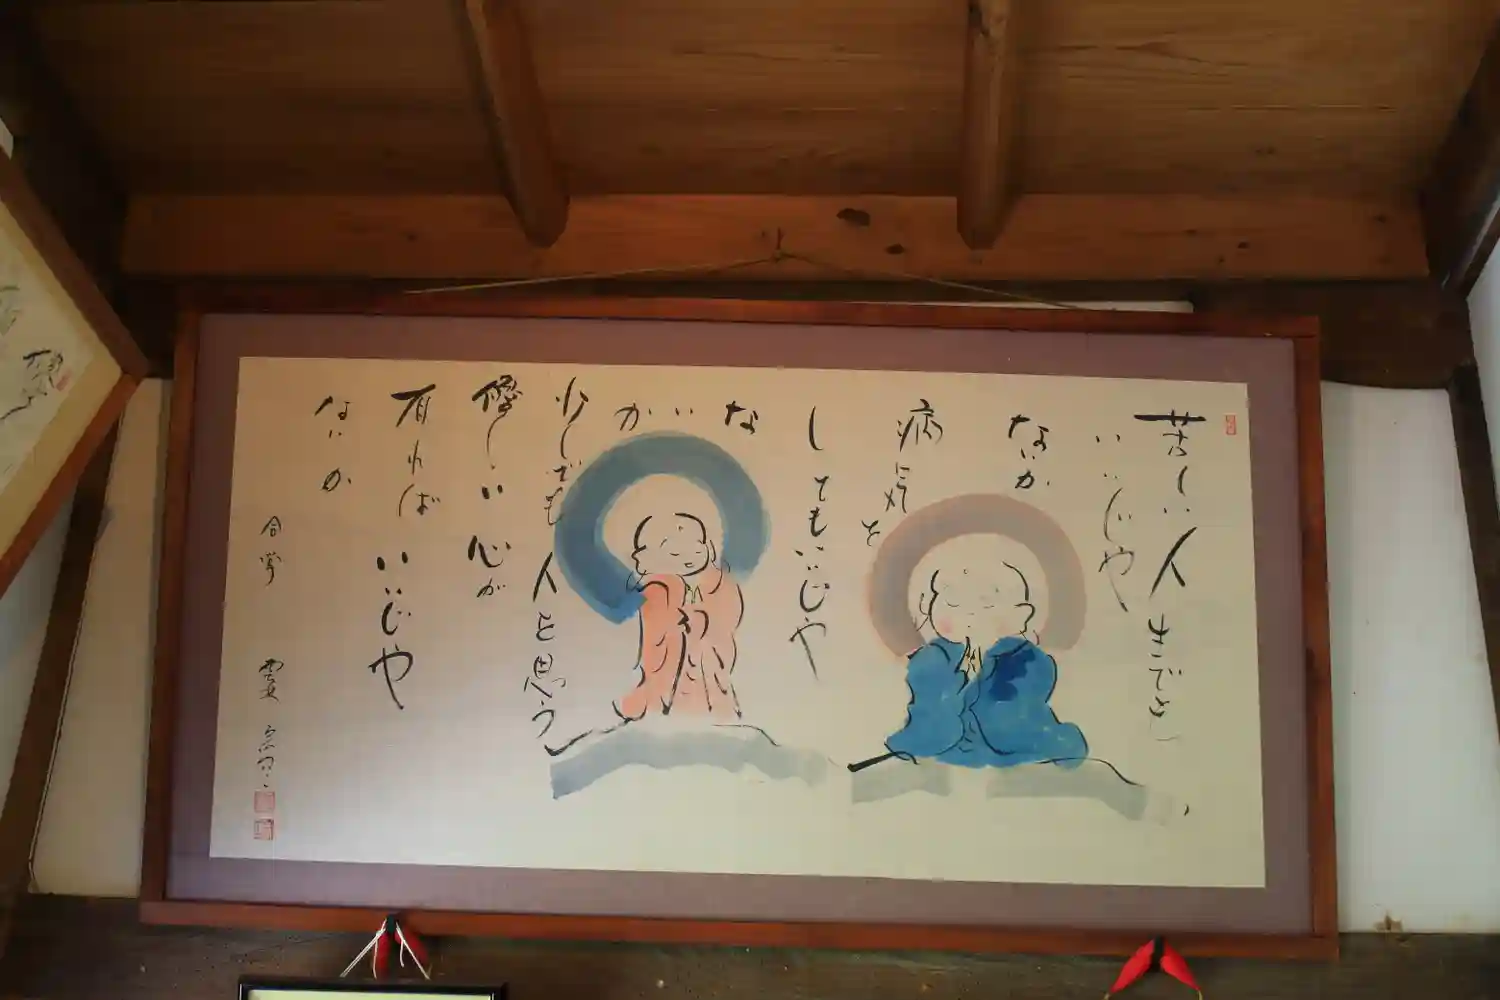 苦しい人生でも
いいじや
ないか
病気を
してもいいじや
な
い
か
少しでも人を思う
優しい心が
有れば
いいじや
ないか
合掌